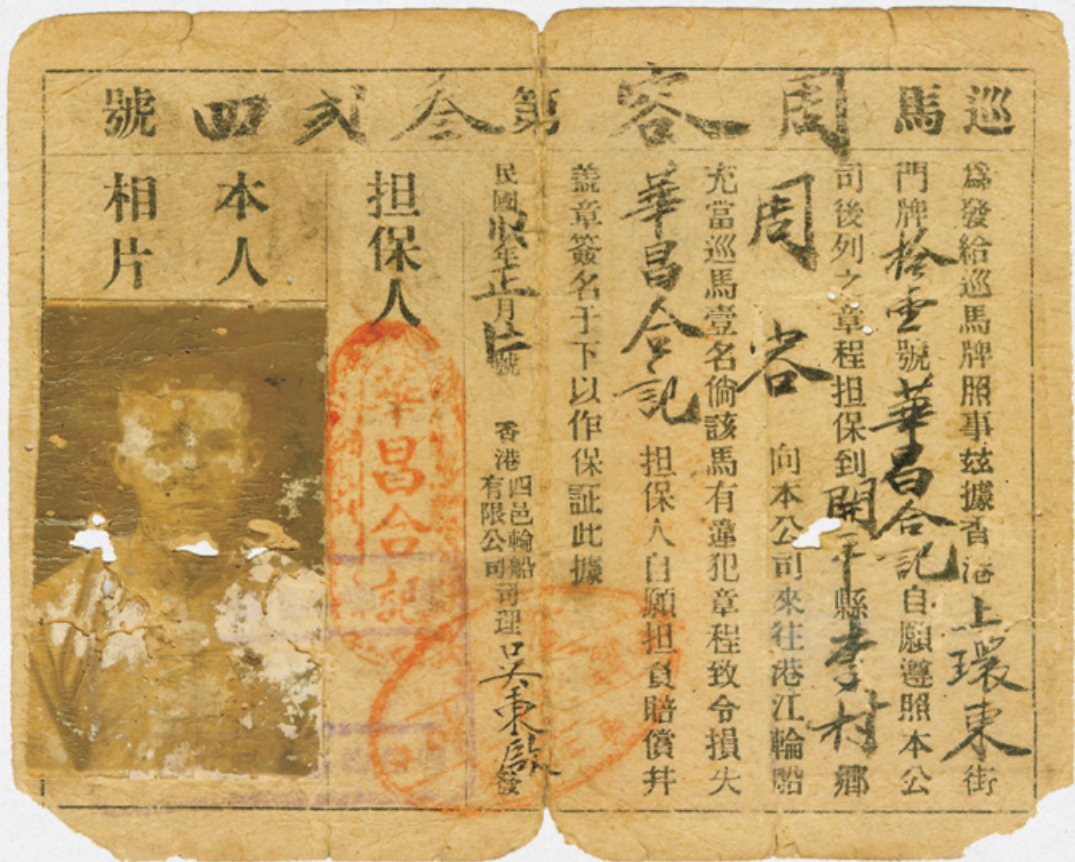 巡馬周容第叁弍四號
爲發給巡馬牌照事玆據香港上環東街
門牌拾壹號華昌合記自願遵照本公
司後列之章程担保到開平縣李村鄉
周容向本公司來往港江輪船
充當巡馬壹名倘該馬有違犯章程致令損失
華昌合記担保人自願担負賠償并
蓋章簽名于下以作保証此據
民國年正月號 香港四邑輪船有限公司司理吳東發
担保人
華昌合記
本人
相片